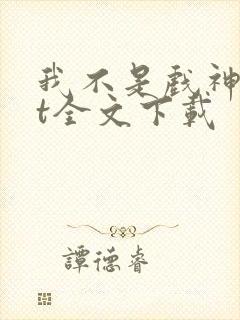 我不是戲神
t全文下載
譚德睿